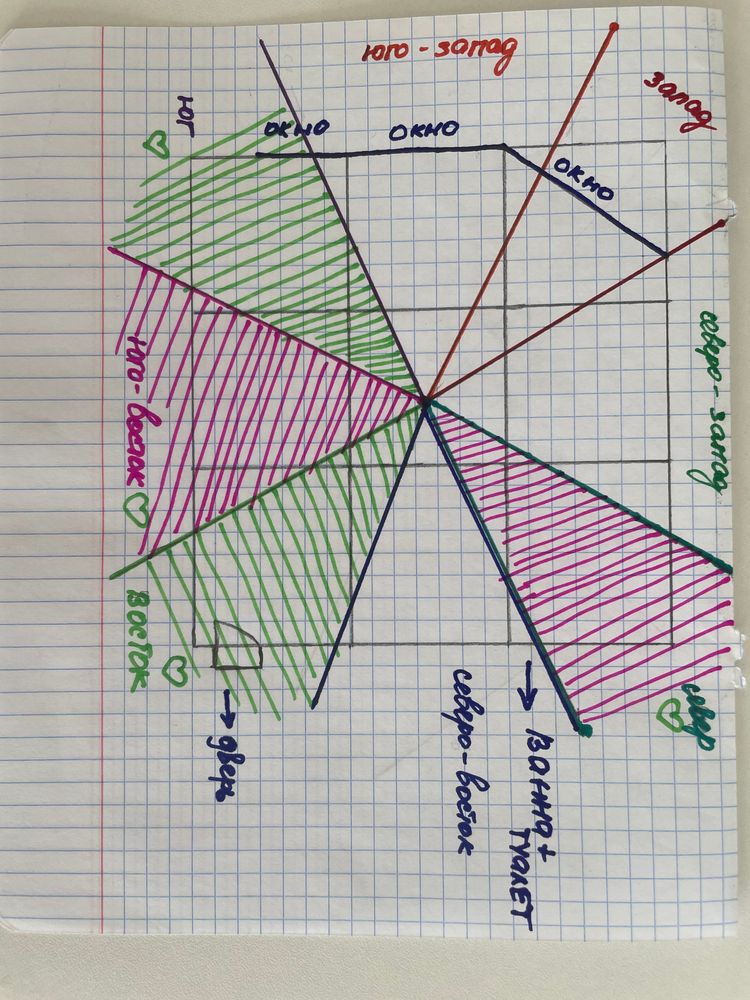 юго-запад
запад
юг
окно
окно
окно
северо-запад
юго-восток
восток
север
→ дверь
→ ванна+
туалет
северо-восток